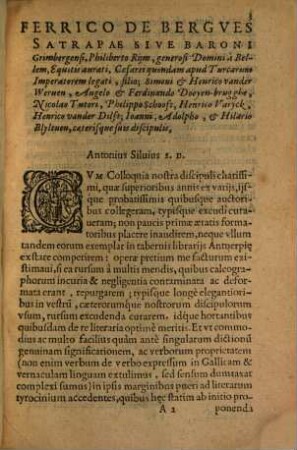 FERRICO DE BERGVES
SATRAPAE SIVE BARONI
Grimbergensi, Philiberto Rym, generosi Domini à Bel-
lem, Equitis aurati, Cæsaris quondam apud Turcarum
Imperatorem legati, filio; Simoni & Henrico vander
Weruen, Angelo & Ferdinando Doeyen-brugghe,
Nicolao Tuters, Philippo Schoofs, Henrico Varyck,
Henrico vander Dilft; Ioanni, Adolpho, & Hilario
Blyleuen, cæterisque suis discipulis,
Antonius Siluius S. D.
CVM Colloquia nostra discipuli charissi-
mi, quæ superioribus annis ex varijs, ijsq́ue
probatissimis quibusque auctori-
bus collegeram, typisque excudi cura-
ueram; non parùm primæ ætatis forma-
toribus placere inaudirem, neque vllum
tandem eorum exemplar in tabernis librarijs Antuerpiæ
exstare comperirem: operæ pretium me facturum exi-
stimaui, si ea rursum à multis mendis, quibus calcogra-
phorum incuria & negligentia contaminata ac defor-
mata erant, repurgarem; typisque longè elegantiori-
bus in vestrũ, cæterorumque nostrorum discipulorum
vsum, rursum excudenda curarem. idque hortantibus
quibusdam de re literaria optimè meritis. Et vt commo-
dius ac multo facilius quàm antè singularum dictionũ
genuinam significationem, ac verborum proprietatem
(non enim verbum de verbo expressum in Gallicam &
vernaculam linguam extulimus, sed sensum dumtaxat
complexi sumus) in ipsis marginibus pueri ad literarum
tyrocinium accedentes, quibus hęc statim ab initio pro-
A 2 ponenda